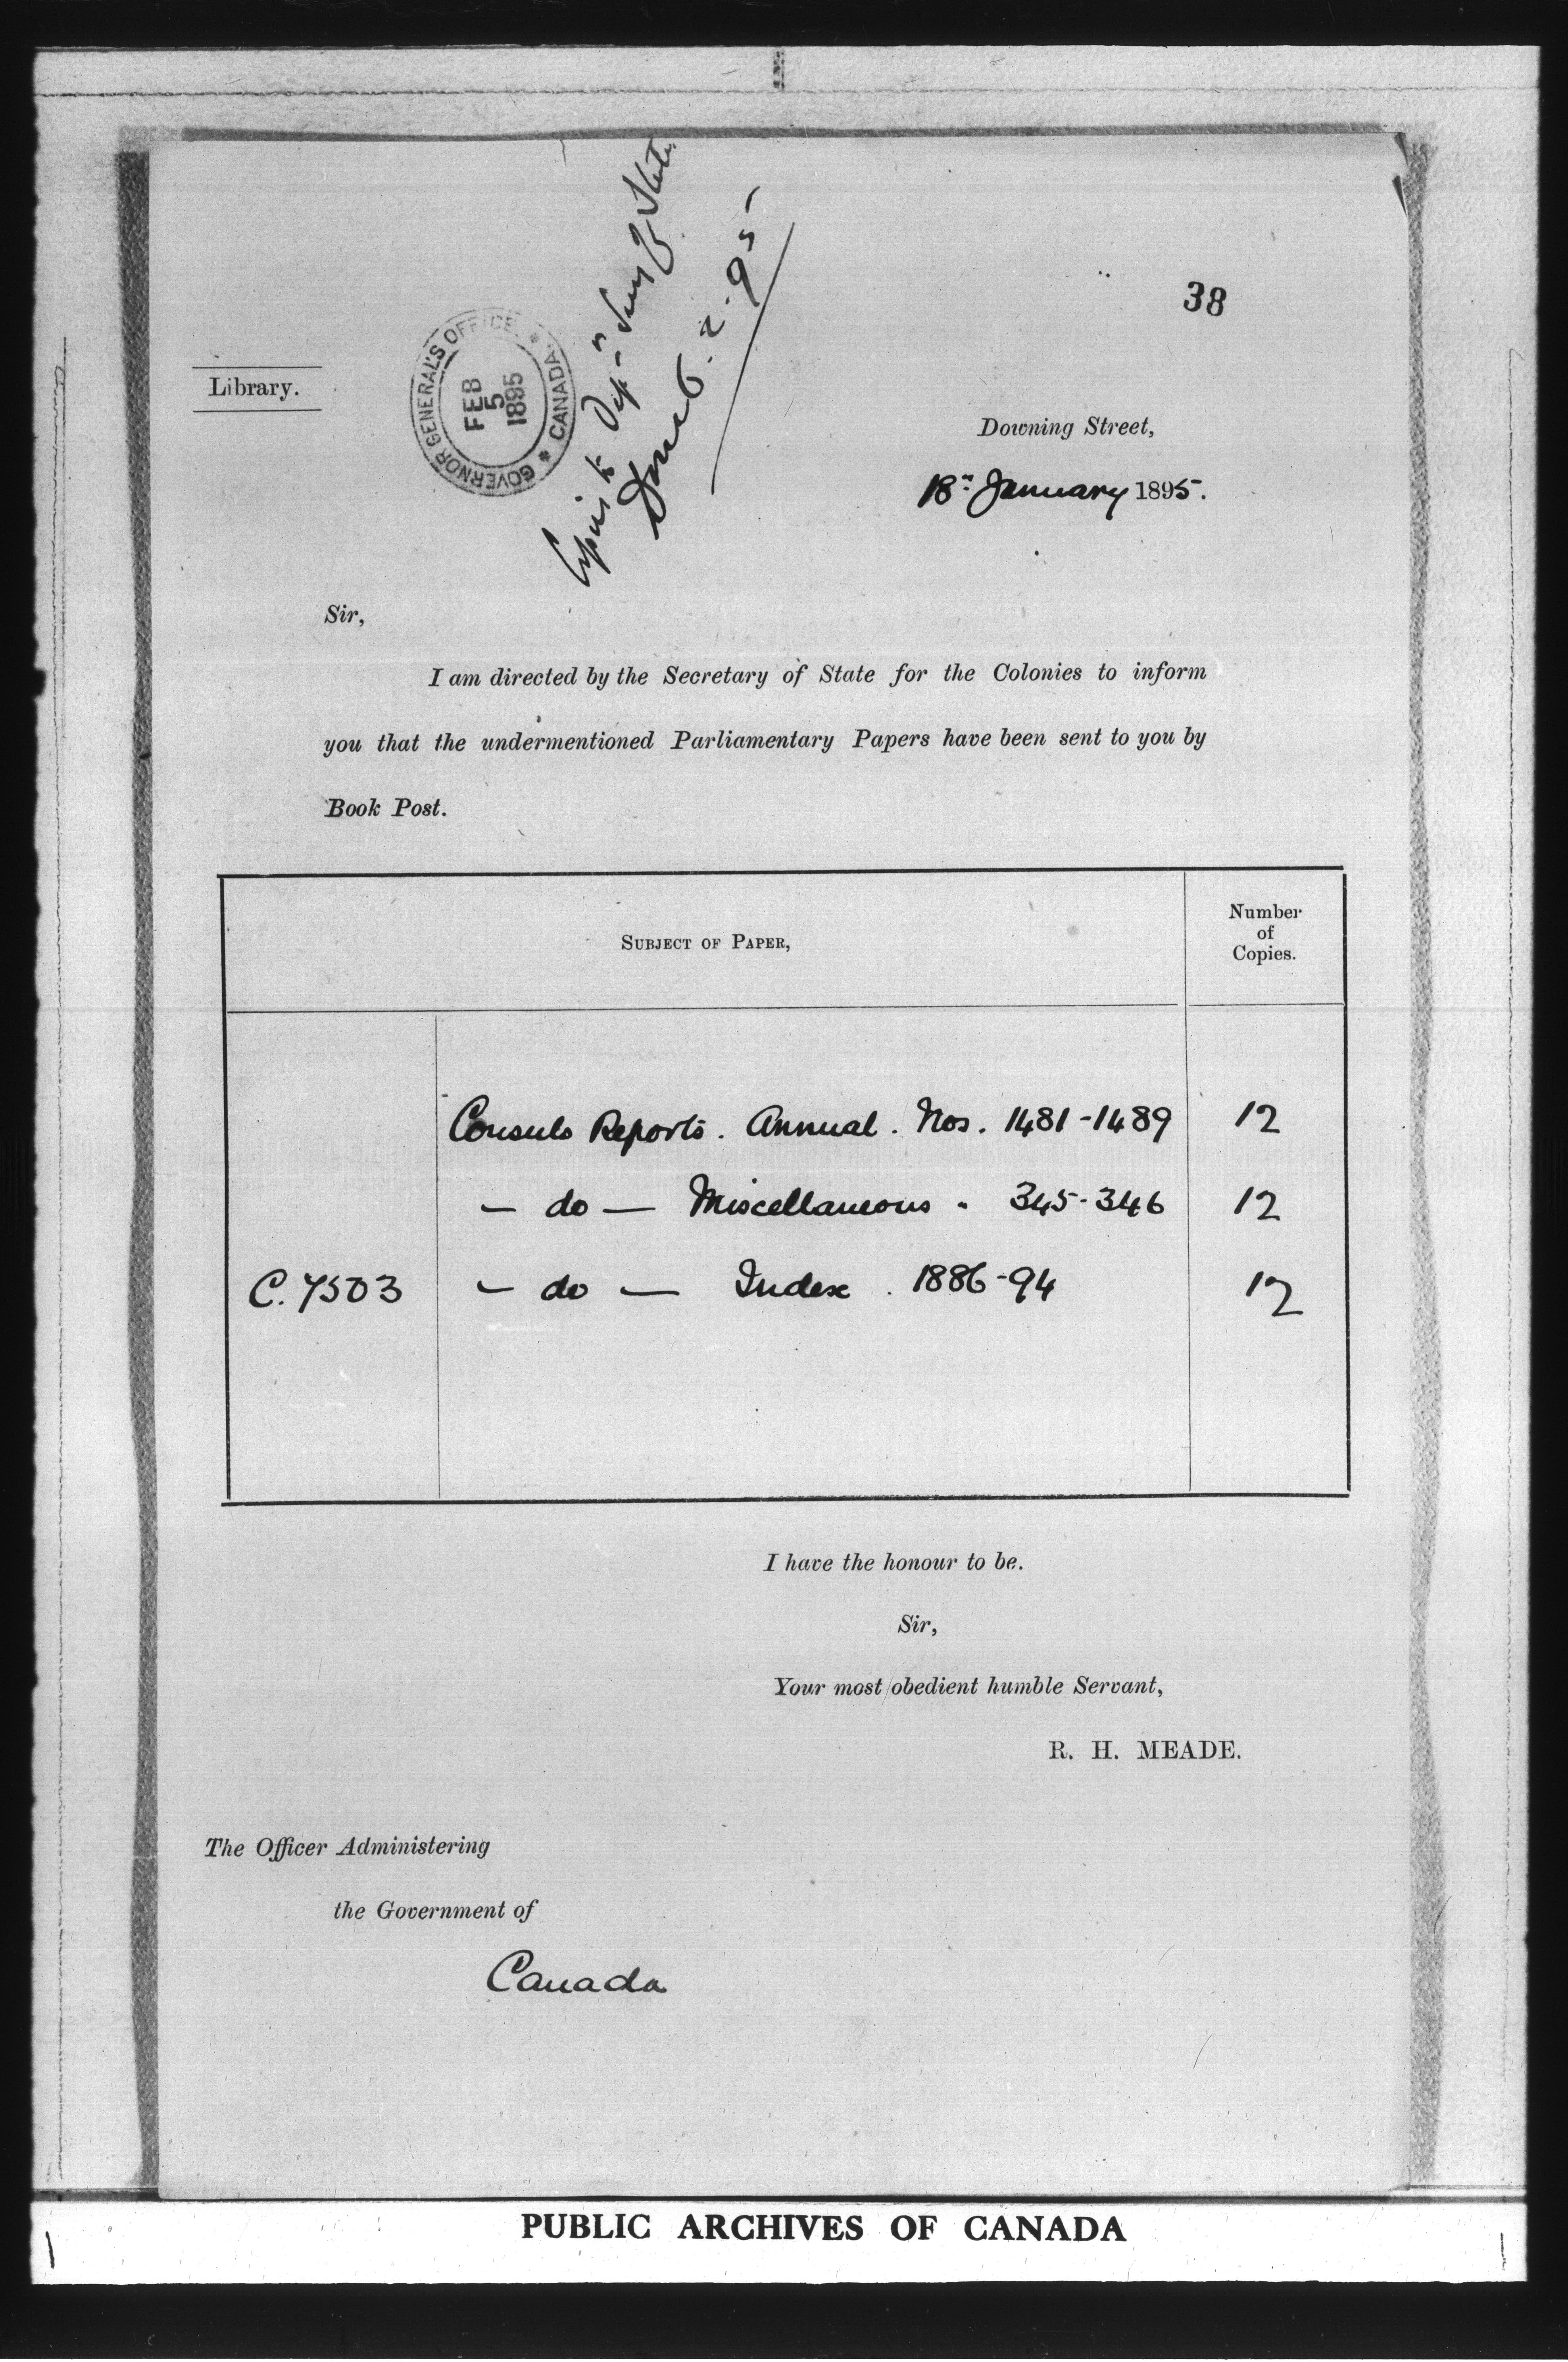 38
Library.
GOVERNOR GENERAL'S OFFICE * CANADA *
FEB
5
1895
Copies to Dep. Secy of State
Done 6.2.95
Downing Street,
18th January 1895.
Sir,
I am directed by the Secretary of State for the Colonies to inform
you that the undermentioned Parliamentary Papers have been sent to you by
Book Post.
SUBJECT OF PAPER,
Number
of
Copies.
Consuls Reports. Annual. Nos. 1481-1489 12
- do - Miscellaneous " 345-346 12
C. 7503 - do - Index. 1886-94 12
I have the honour to be.
Sir,
Your most obedient humble Servant,
R. H. MEADE.
The Officer Administering
the Government of
Canada
PUBLIC ARCHIVES OF CANADA